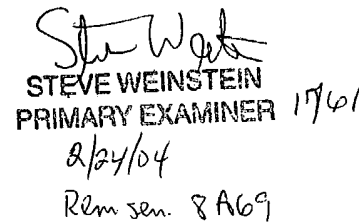 Steve Weinstein
STEVE WEINSTEIN
PRIMARY EXAMINER 1761
2/24/04
Rem sen. 8A69